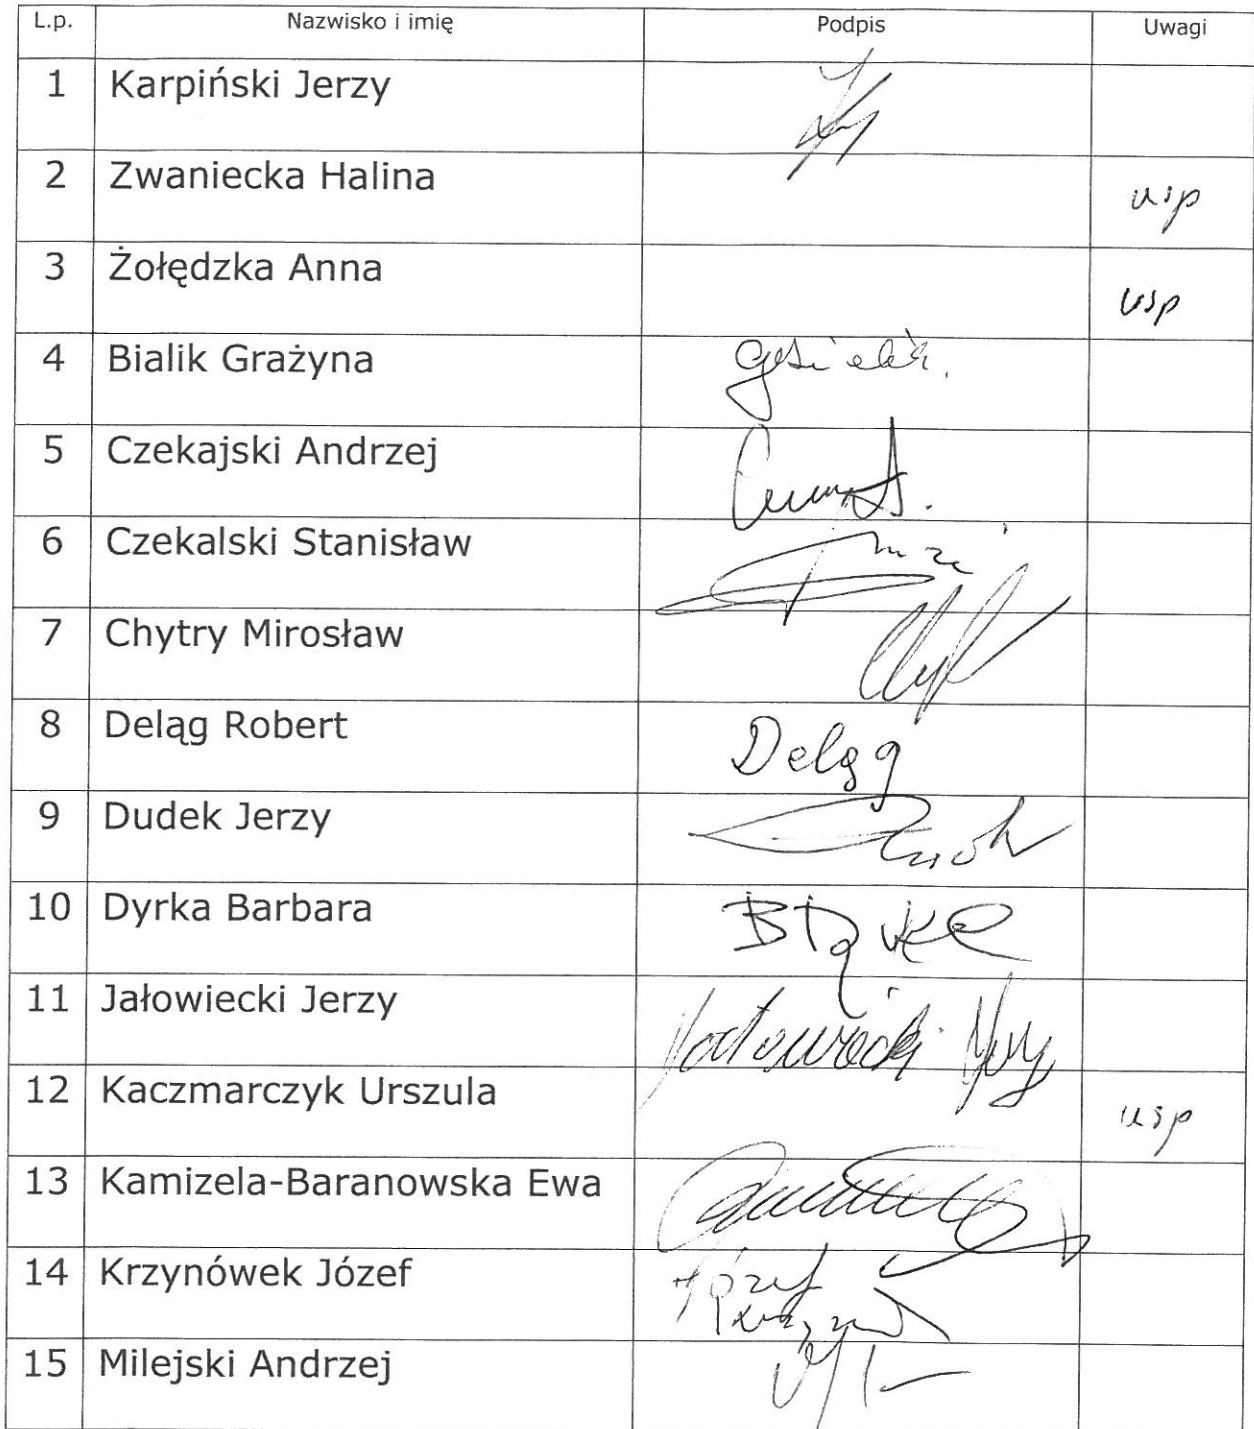 L.p. Nazwisko i imię Podpis Uwagi
1 Karpiński Jerzy
2 Zwaniecka Halina usp
3 Żołędzka Anna usp
4 Bialik Grażyna
5 Czekajski Andrzej
6 Czekalski Stanisław
7 Chytry Mirosław
8 Deląg Robert Deląg
9 Dudek Jerzy
10 Dyrka Barbara
11 Jałowiecki Jerzy Jałowiecki Jerzy
12 Kaczmarczyk Urszula usp
13 Kamizela-Baranowska Ewa
14 Krzynówek Józef Józef
15 Milejski Andrzej